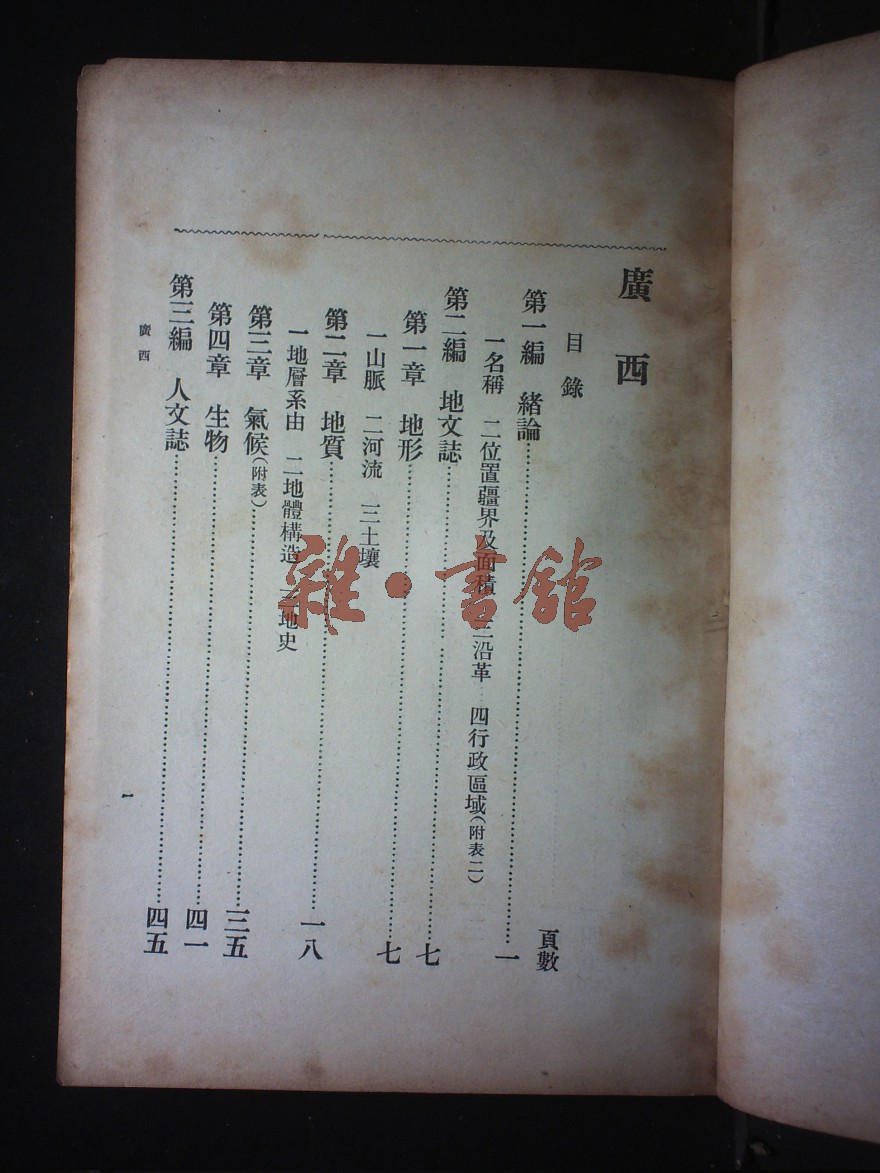 廣西
目錄
頁數
第一編 緒論……一
一名稱 二位置疆界及面積 三沿革 四行政區域(附表二)
第二編 地文誌……七
第一章 地形……七
一山脈 二河流 三土壤
第二章 地質……一八
一地層系由 二地體構造 三地史
第三章 氣候(附表)……三五
第四章 生物……四一
第三編 人文誌……四五
廣西
一
雜·書館